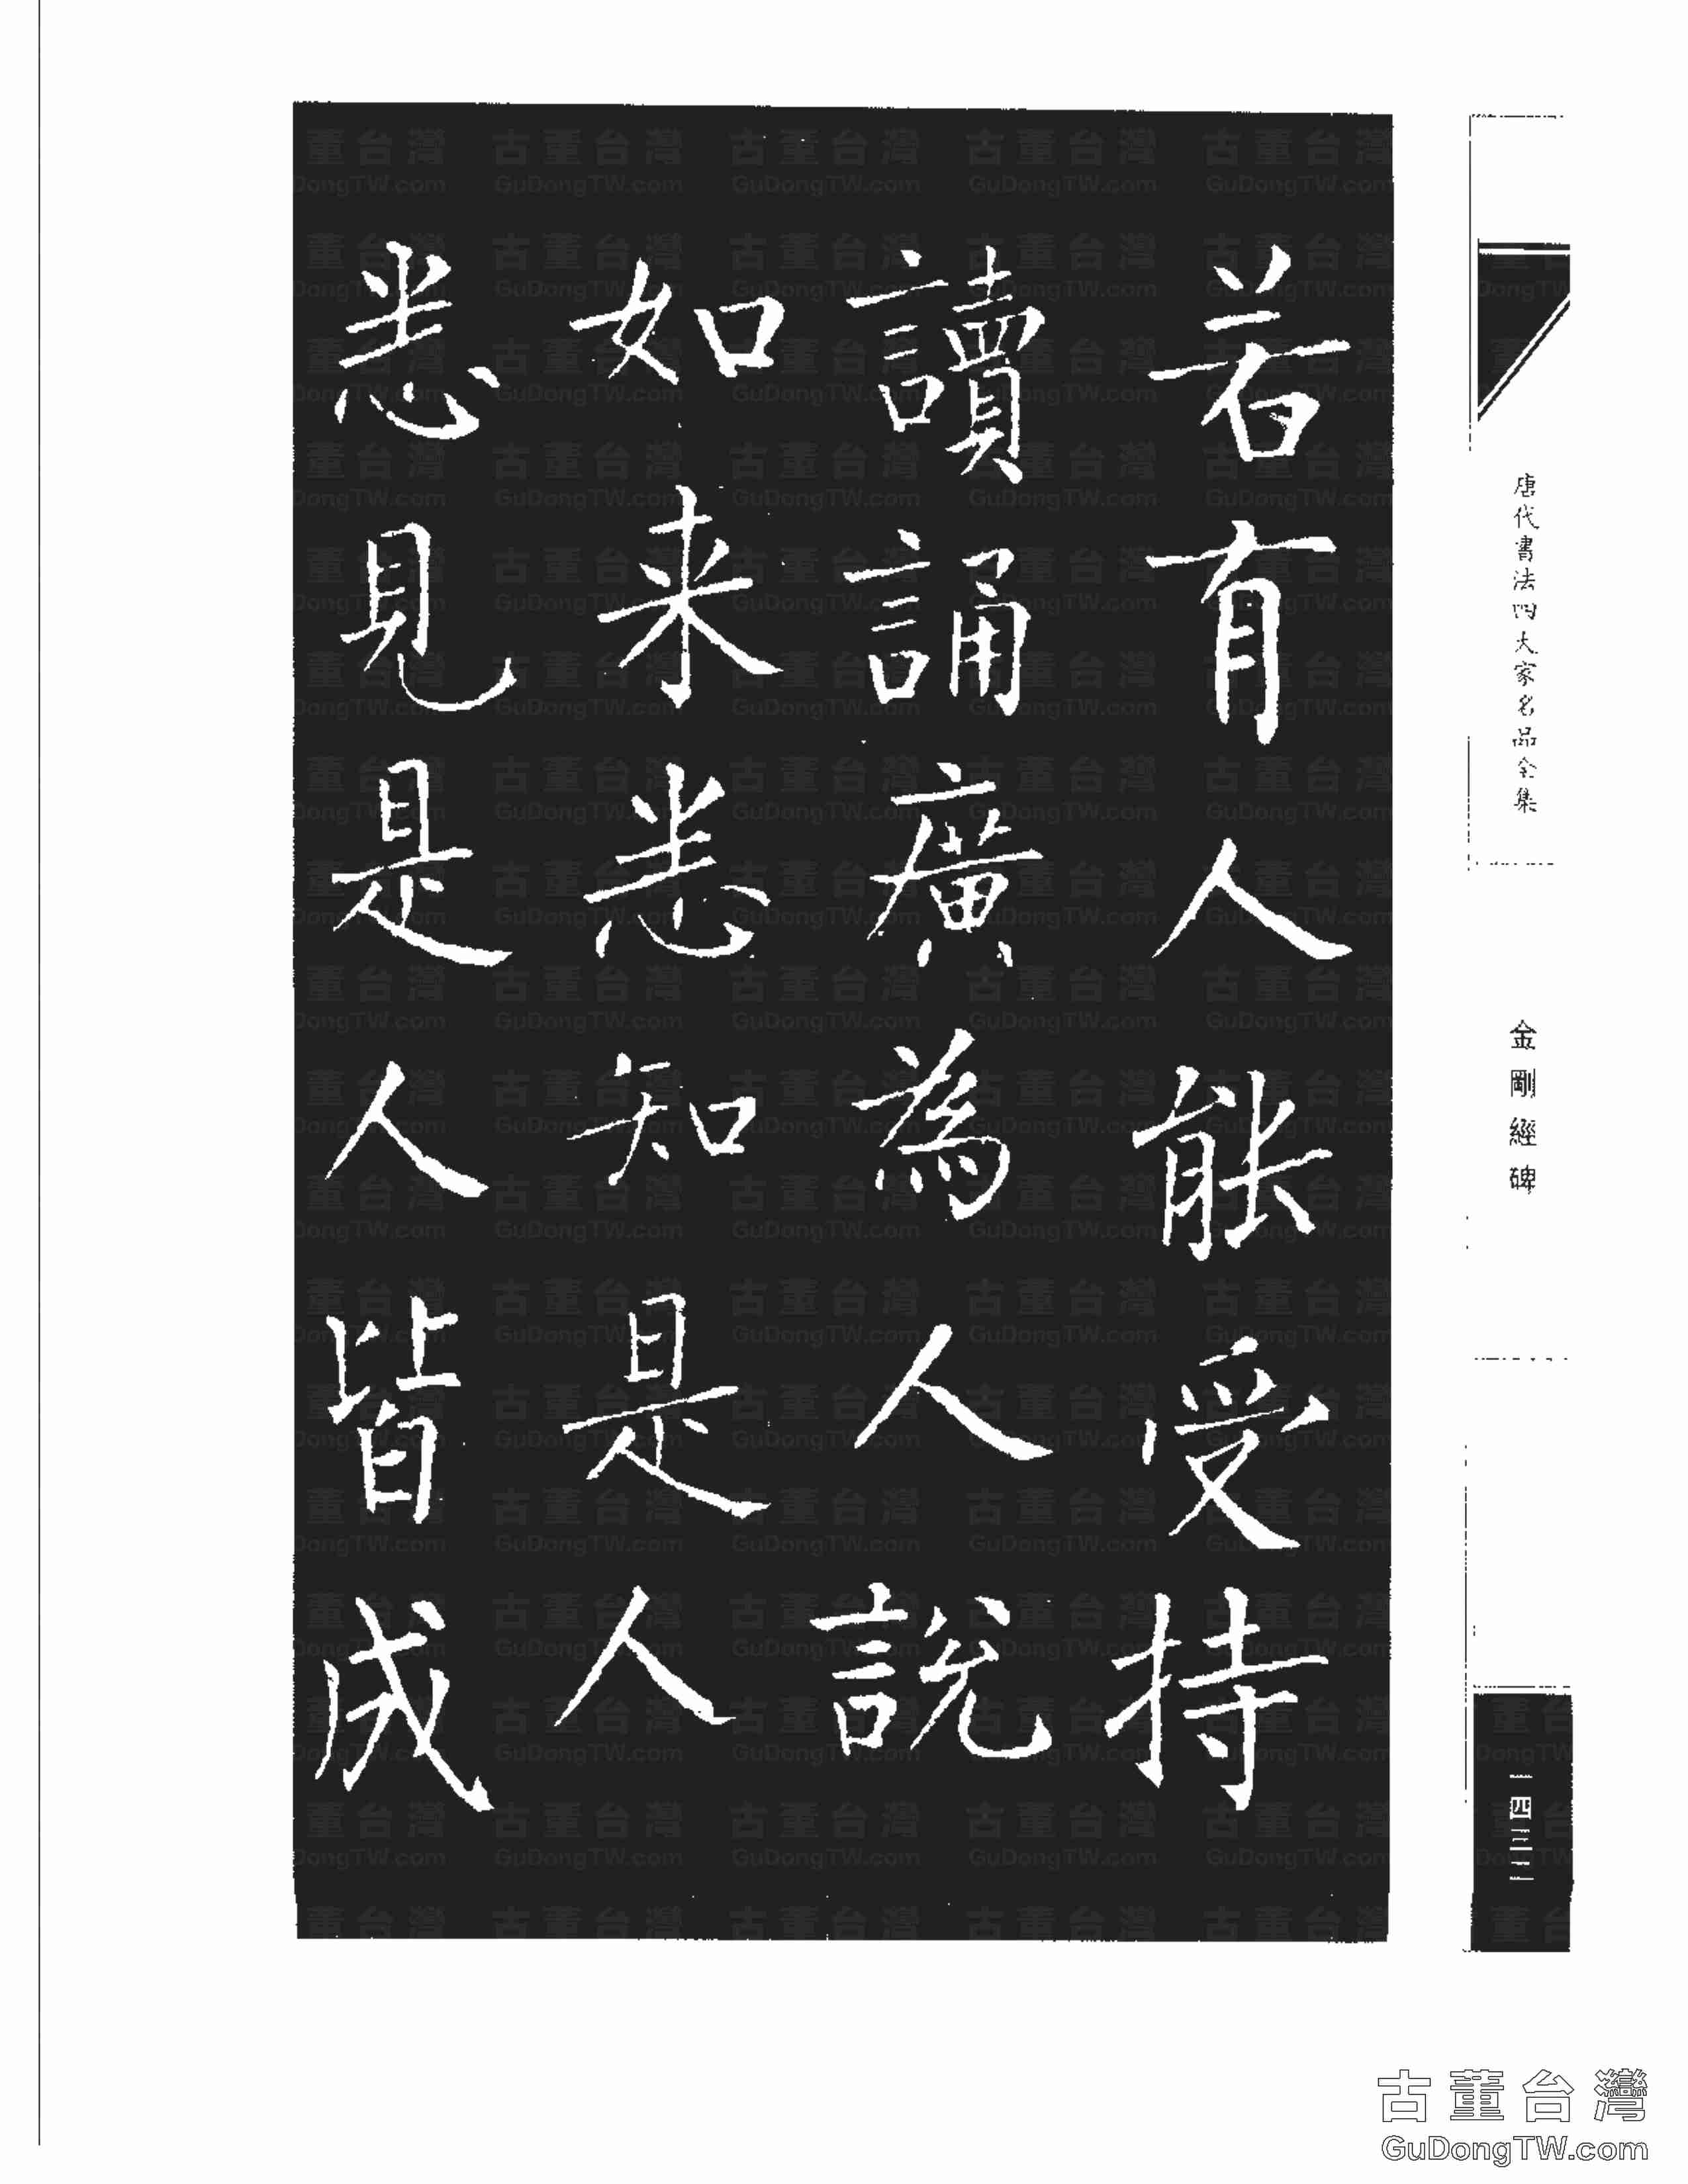 若有人能受持
讀誦廣為人說
如来悉知是人
悉見是人皆成
唐代書法四大家名品全集
金剛經碑
一四三二
古董台灣
GuDongTW.com